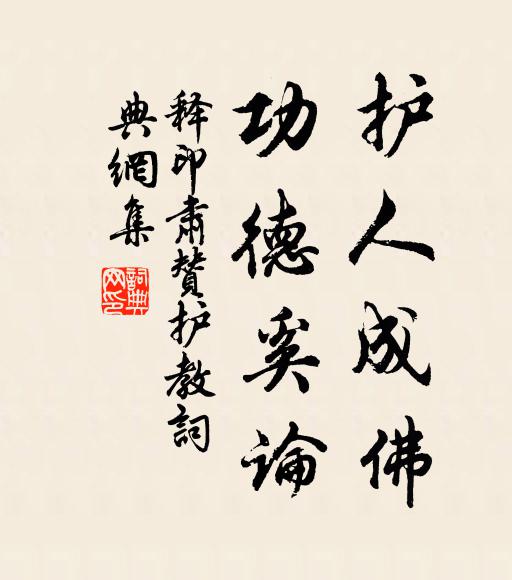 护人成佛
功德奚论
释印肃赞护教詞
典網集
詞典网印